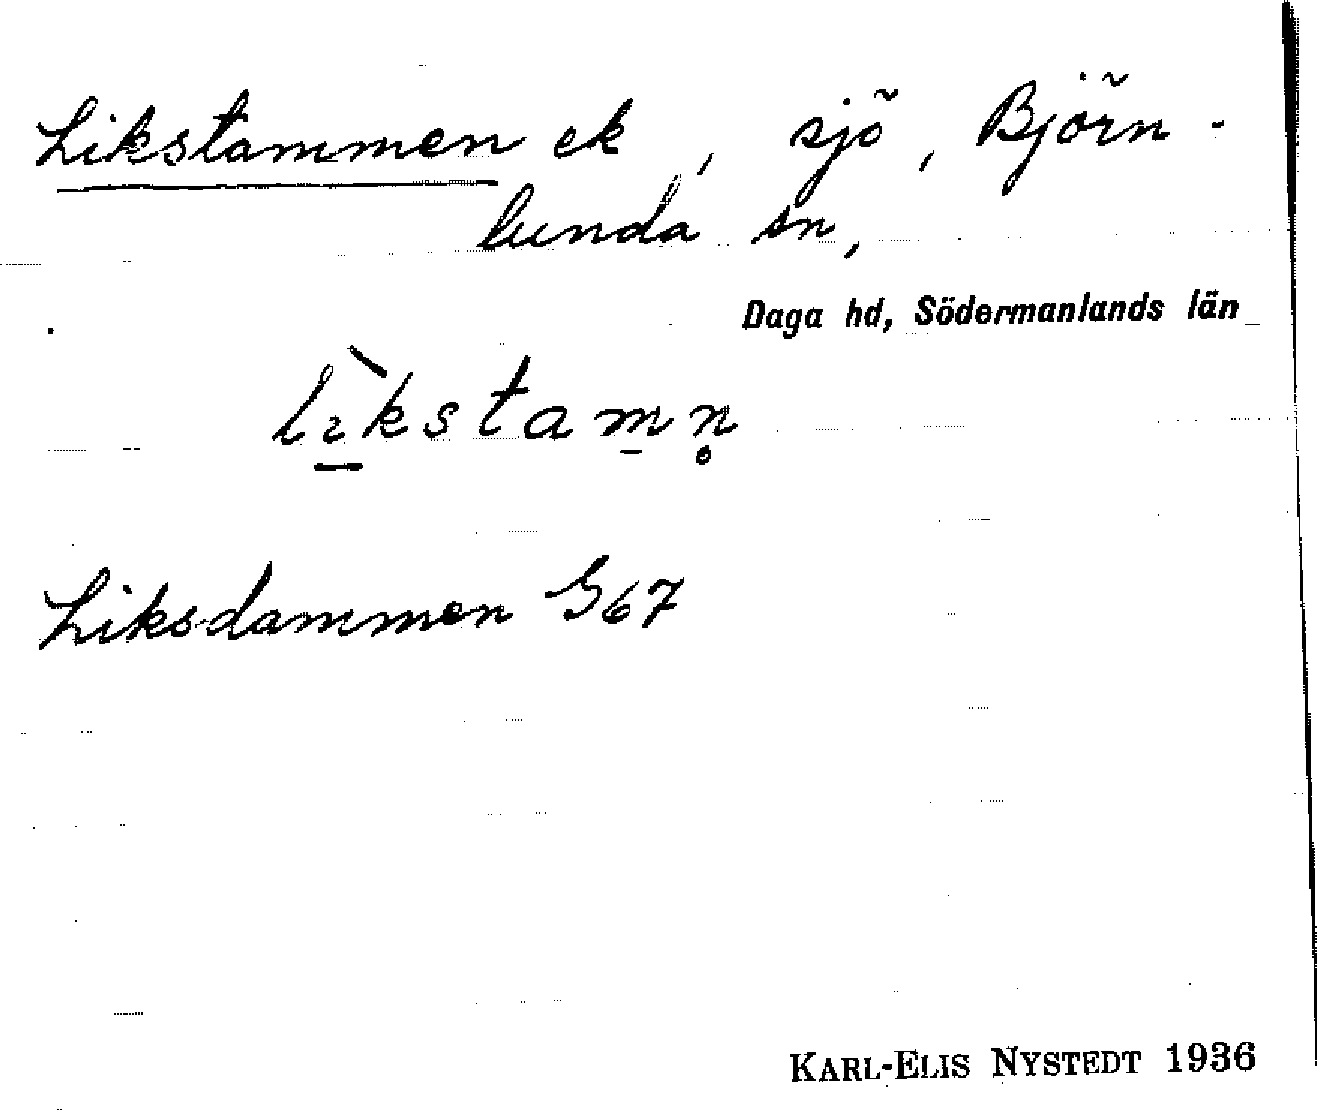 Likstammen ek, sjö, Björn-
lunda sn,
Daga hd, Södermanlands län
lìkstamn̥
Liksdammen G67
KARL-ELIS NYSTEDT 1936